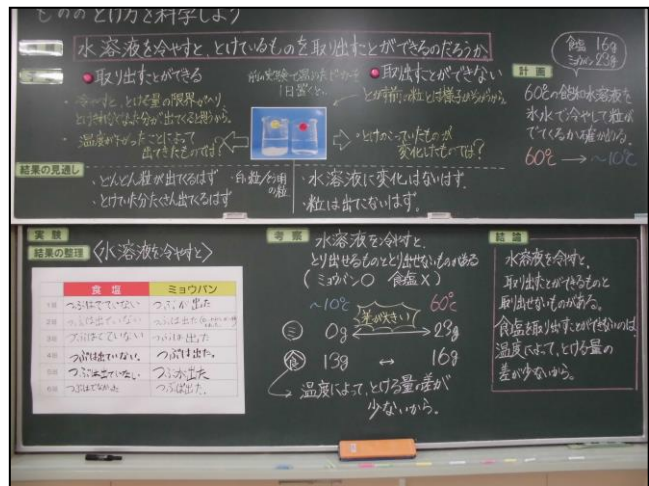 もののとけ方を科学しよう
水溶液を冷やすと、とけているものを取り出すことができるのだろうか
取り出すことができる
・冷やすと、とける量の限界が
とけきれなくなった分が出てくると思うから。
・温度が下がったことによって
出てきたものでは?
1日置くと、
取り出すことができない
とかす前の粒とは様子がちがうから。
・とけのこっていたものが
変化したものでは?
食塩 16g
ミョウバン 23g
計画
60℃の飽和水溶液を
氷水で冷やして粒が
でてくるか確かめる。
60℃ → ~10℃
結果の見通し
・どんどん粒が出てくるはず
・とけていた分たくさん出てくるはず
・水溶液に変化はないはず。
・粒は出てこないはず。
実験
結果の整理
〈水溶液を冷やすと〉
食塩 ミョウバン
1班 つぶはでていない つぶが出た
2班 つぶは出ていない つぶは出た
3班 つぶはでていない つぶは出た
4班 つぶは出ていない。 つぶは出た。
5班 つぶは出ていない つぶが出た
6班 つぶはでなかった つぶは出た。
考察
水溶液を冷やすと、
とり出せるものととり出せないものがある
(ミョウバン○ 食塩×)
~10℃ 差が大きい 60℃
ミ 0g ↔ 23g
食 13g ↔ 16g
温度によって、とける量の差が
少ないから。
結論
水溶液を冷やすと、
取り出すことができるものと
取り出せないものがある。
食塩を取り出すことができないのは、
温度によって、とける量の
差が少ないから。